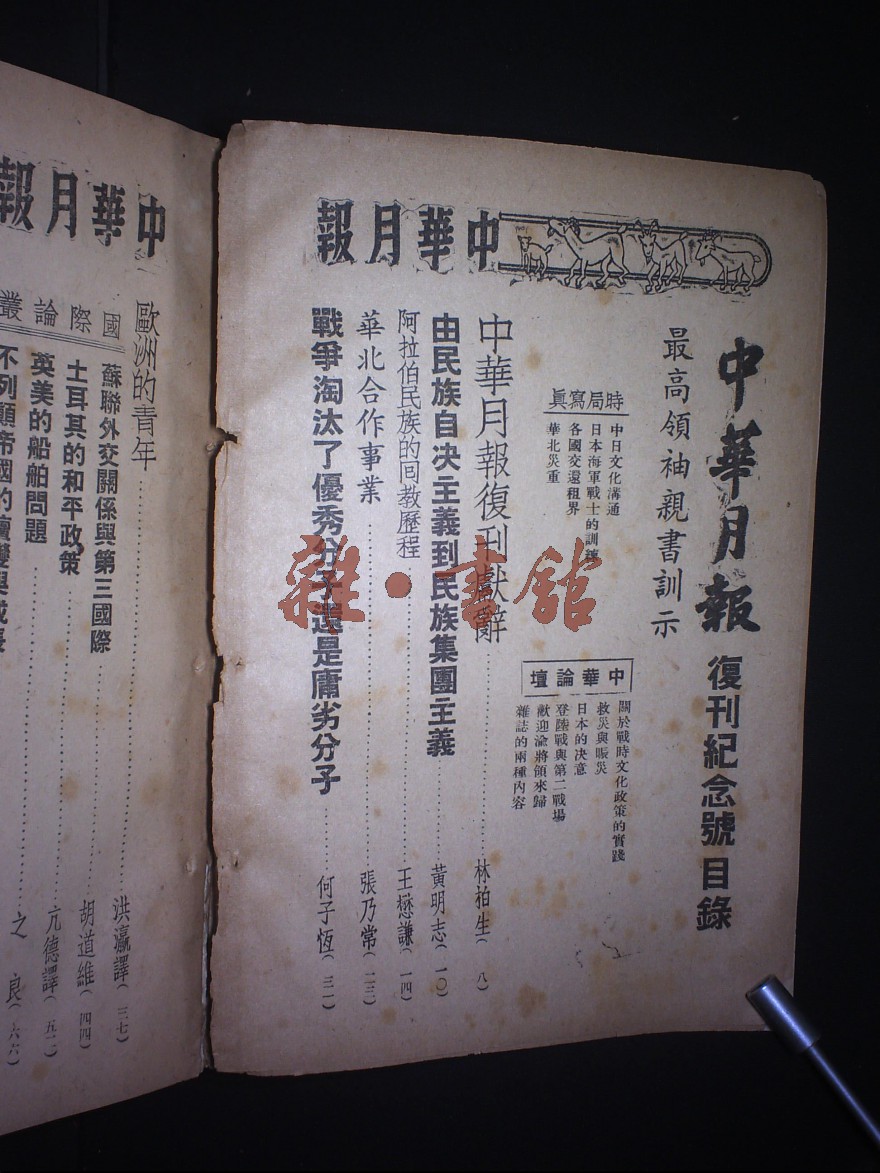 中華月報
中華月報 復刊紀念號目錄
最高領袖親書訓示
時局寫眞
中日文化溝通
日本海軍戰士的訓練
各國交還租界
華北災重
中華論壇
關於戰時文化政策的實踐
救災與賑災
日本的决意
登陸戰與第二戰場
歡迎淪將領來歸
雜誌的兩種內容
中華月報復刊獻辭……林柏生(八)
由民族自决主義到民族集團主義……黃明志(一〇)
阿拉伯民族的回教歷程……王懋謙(一四)
華北合作事業……張乃常(二三)
戰爭淘汰了優秀分子還是庸劣分子……何子恆(三一)
雜·書館
中華月報
歐洲的青年……洪瀛譯(三七)
國際論叢
蘇聯外交關係與第三國際……胡道維(四四)
土耳其的和平政策……亢德譯(五二)
英美的船舶問題……之良(六六)
不列顚帝國的演變與成長